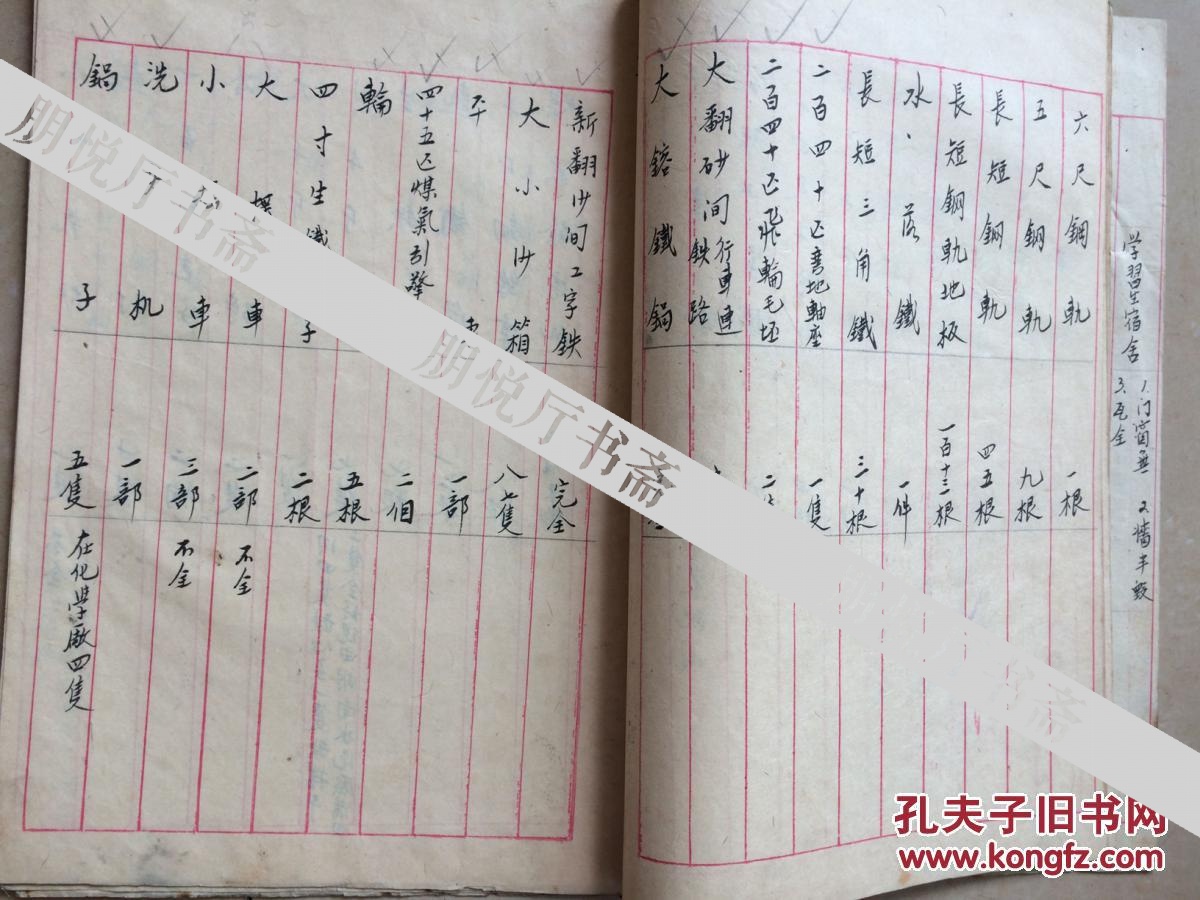 学習生宿舍
1.门窗無 2.墙半毀
3.瓦全
六尺鋼軌 一根
五尺鋼軌 九根
長短鋼軌 四五根
長短鋼軌地板 一百十三根
水、落鐵 一件
長短三角鐵 三十根
二百四十匹弯地軸座 一隻
二百四十匹飛輪毛坯 二
大翻砂间行車連铁路
大鎔鐵鍋
新翻沙间工字鉄 完全
大小沙箱 八七隻
平 一部
四十五匹煤氣引擎 二個
輪 五根
四寸生鐵 子 二根
大 車 二部 不全
小 車 三部 不全
洗 机 一部
鍋子 五隻 在化學廠四隻
朋悦厅书斋
朋悦厅书斋
朋悦厅书斋
孔夫子旧书网
www.kongfz.com